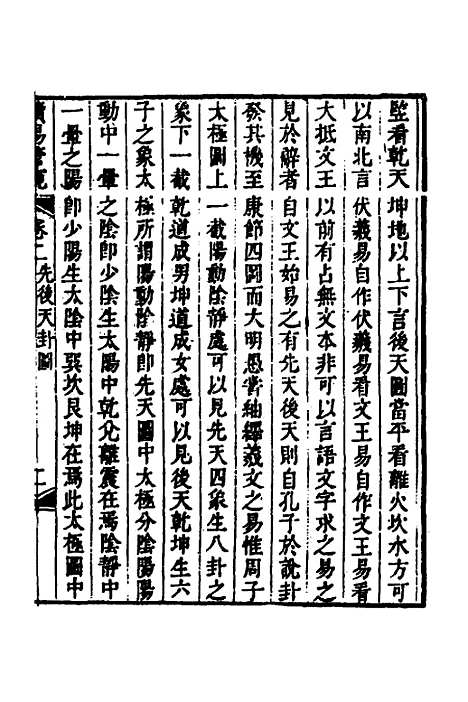 竪看乾天坤地以上下言後天圖當平看離火坎水方可
以南北言伏羲易自作伏羲易看文王易自作文王易看
大抵文王以前有占無文本非可以言語文字求之易之
見於辭者自文王始易之有先天後天則自孔子於說卦
發其機至康節四圖而大明愚嘗紬繹羲文之易惟周子
太極圖上一截陽動陰靜處可以見先天四象生八卦之
象下一截乾道成男坤道成女處可以見後天乾坤生六
子之象太極所謂陽動陰靜即先天圖中太極分陰陽陽
動中一暈之陰即少陰生太陽中乾兌離震在焉陰靜中
一暈之陽即少陽生太陰中巽坎艮坤在焉此太極圖中
讀易管窺 卷二 先後天卦圖